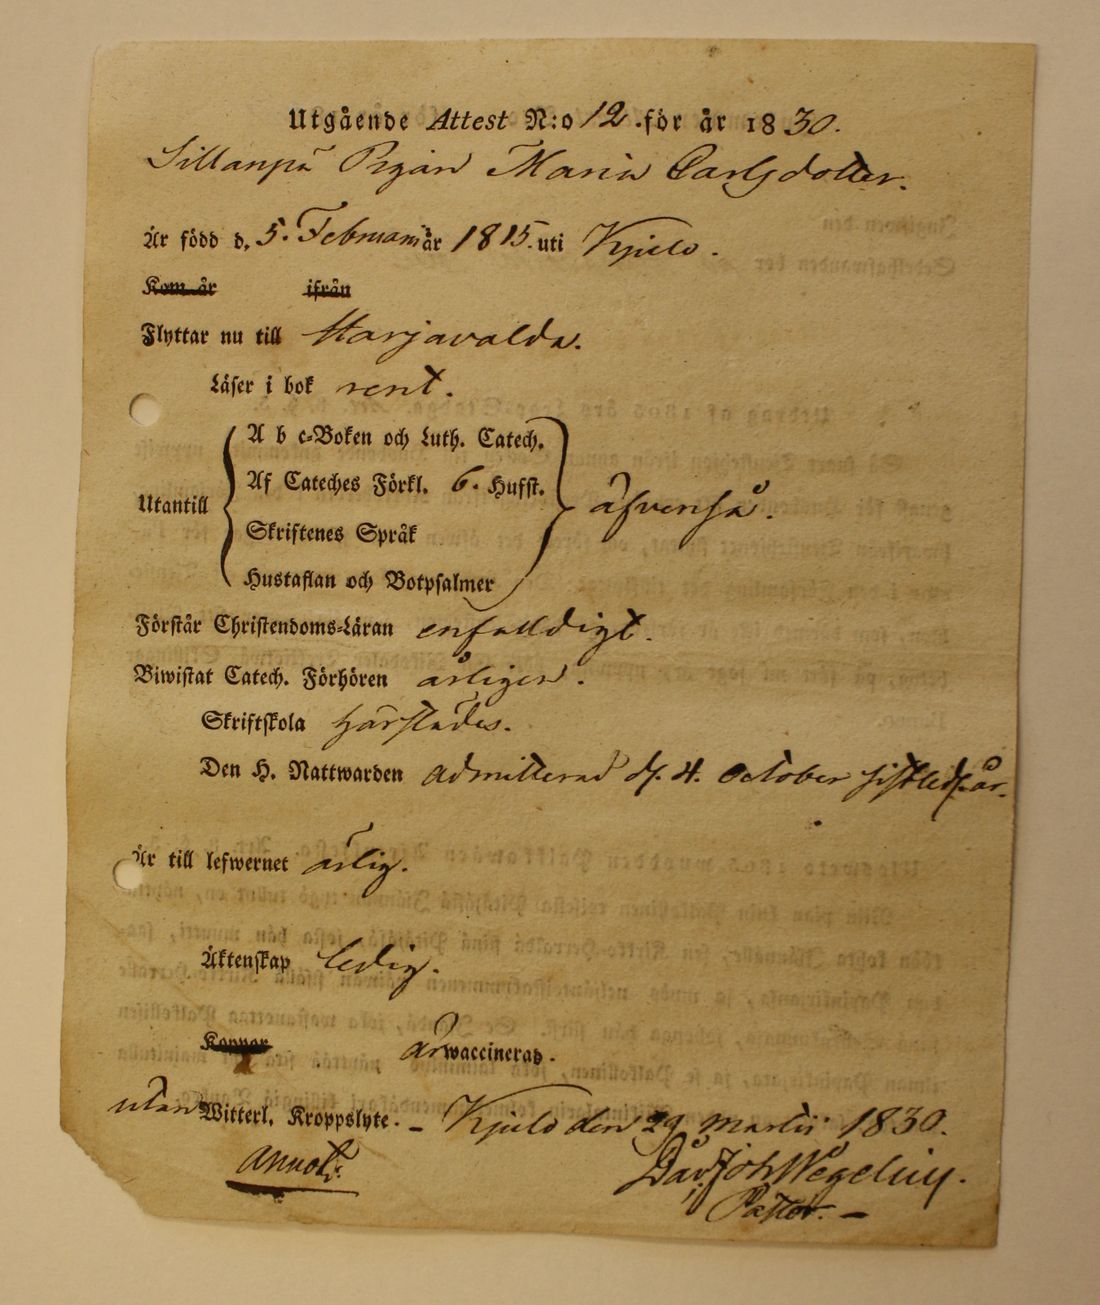 Utgående Attest N:o 12. för år 1830.
Sillanpä Pigan Maria Carlsdotter.
Är född d. 5. Februarii år 1815. uti Kjulo.
Kom år ifrån
Flyttar nu till Harjavalda.
Läser i bok rent.
A b c-Boken och Luth. Catech.
Af Cateches Förkl. 6. Hufst.
Utantill äfvenså.
Skriftenes Språk
Hustaflan och Botpsalmer
Förstår Christendoms-Läran enfalldigt.
Biwistat Catech. Förhören årligen.
Skriftskola härstädes.
Den H. Nattwarden admitterad d. 4. October sistled. år.
Är till lefwernet ärlig.
Äktenskap ledig.
Koppor är waccinerad.
utan Witterl. Kroppslyte. - Kjulo den 29 Martii 1830.
annot:
Dav Joh Wegelius.
Pastor. -